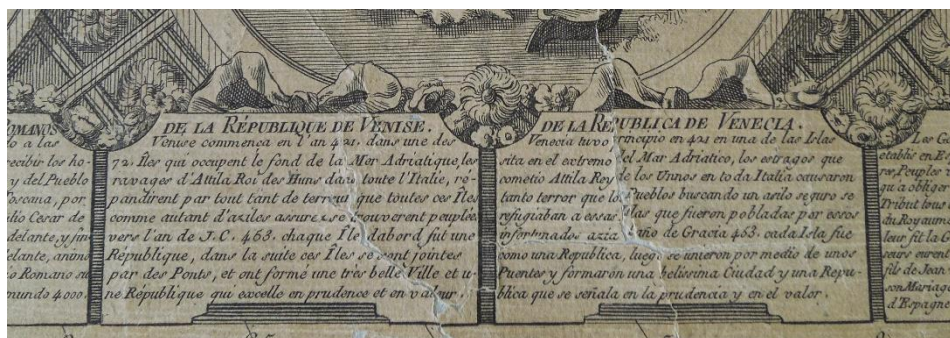 OMANOS
o a las
ecibir los ho-
y del Pueblo
Toscana, por
lio Cesar de
delante, y fin-
elante, anim
io Romano su
mundo 4000.
DE LA RÉPUBLIQUE DE VENISE.
Venise commença en l'an 421. dans une des
72. Îles qui occupent le fond de la Mer Adriatique, les
ravages d'Attila Roi des Huns dans toute l'Italie, ré-
pandirent par tout tant de terreur que toutes ces Îles
comme autant d'aziles assurez se trouverent peuplées
vers l'an de J.C. 463. chaque Île d'abord fut une
République, dans la suite ces Îles se sont jointes
par des Ponts, et ont formé une très belle Ville et u-
ne République qui excelle en prudence et en valeur.
DE LA REPUBLICA DE VENECIA.
Venecia tuvo principio en 421 en una de las Islas
sita en el extremo del Mar Adriático, los estragos que
cometio Attila Rey de los Unnos en toda Italia causaron
tanto terror que los Pueblos buscando un asilo seguro se
refugiaban a essas Islas que fueron pobladas por essos
infortunados azia el año de Gracia 463. cada Isla fue
como una Republica, luego se unieron por medio de unos
Puentes y formarón una belissima Ciudad y una Repu-
blica que se señala en la prudencia y en el valor.
Les G
etablis en E
res, Peuples
qu a obligo
Tribut tous
du Royaum
leur fit la G
seurs eurent
fils de Jean
son Mariag
d'Espagne